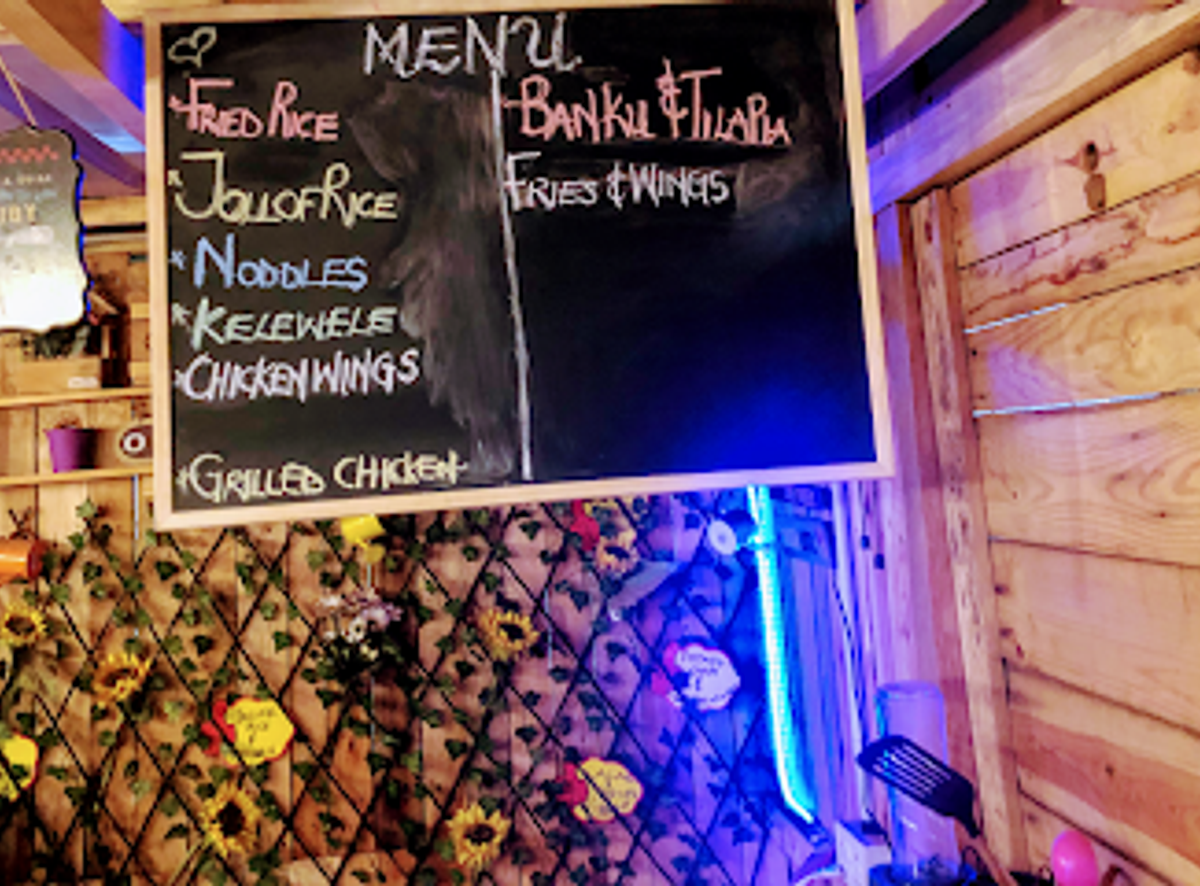 MENU
*FRIED RICE
*JOLLOF RICE
*NODDLES
*KELEWELE
*CHICKEN WINGS
*GRILLED CHICKEN
*BANKU & TILAPIA
FRIES & WINGS